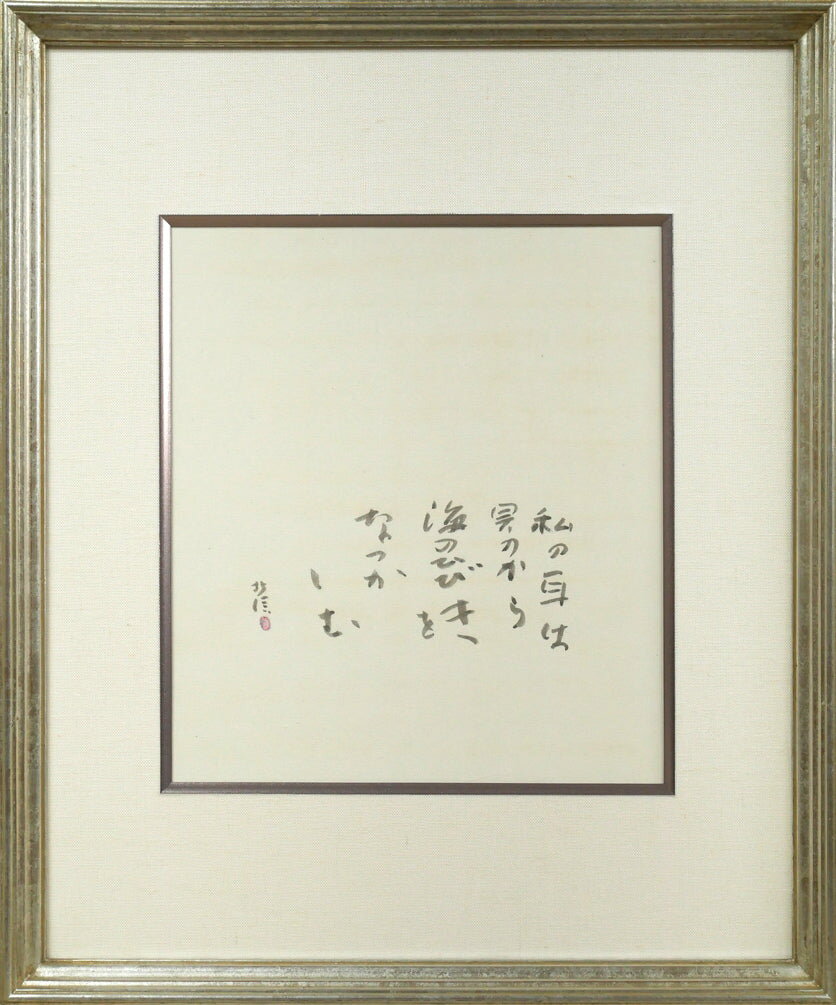 私の耳は
貝のから
海のひびきを
なつか
しむ